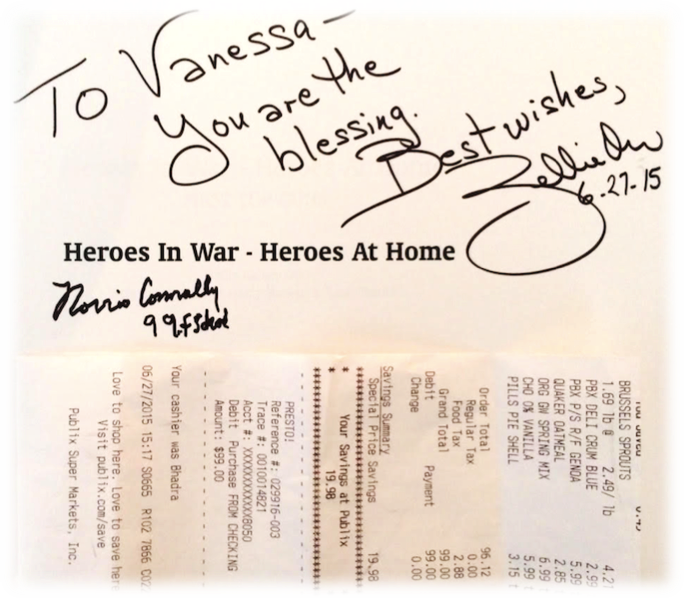 To Vanessa-
You are the
blessing.
Best wishes,
6-27-15
Heroes In War - Heroes At Home
Norris Connally
99.fSqd
BRUSSELS SPROUTS
1.69 lb @ 2.49/ lb 4.21
PBX DELI CRUM BLUE 2.99
PBX P/S R/F GENOA 5.99
QUAKER OATMEAL 2.85
ORG GW SPRING MIX 6.99
CHO 0% VANILLA 5.99
PILLS PIE SHELL 3.15
Order Total 96.12
Regular Tax 0.00
Food Tax 2.88
Grand Total 99.00
Debit Payment 99.00
Change 0.00
Savings Summary
Special Price Savings 19.98
****************************************
* Your Savings at Publix
* 19.98
****************************************
PRESTO!
Reference #: 029916-003
Trace #: 0010014821
Acct #: XXXXXXXXXXXX8050
Debit Purchase FROM CHECKING
Amount: $99.00
Your cashier was Bhadra
06/27/2015 15:17 S0665 R102 7866
Love to shop here. Love to save here
Visit publix.com/save
Publix Super Markets, Inc.